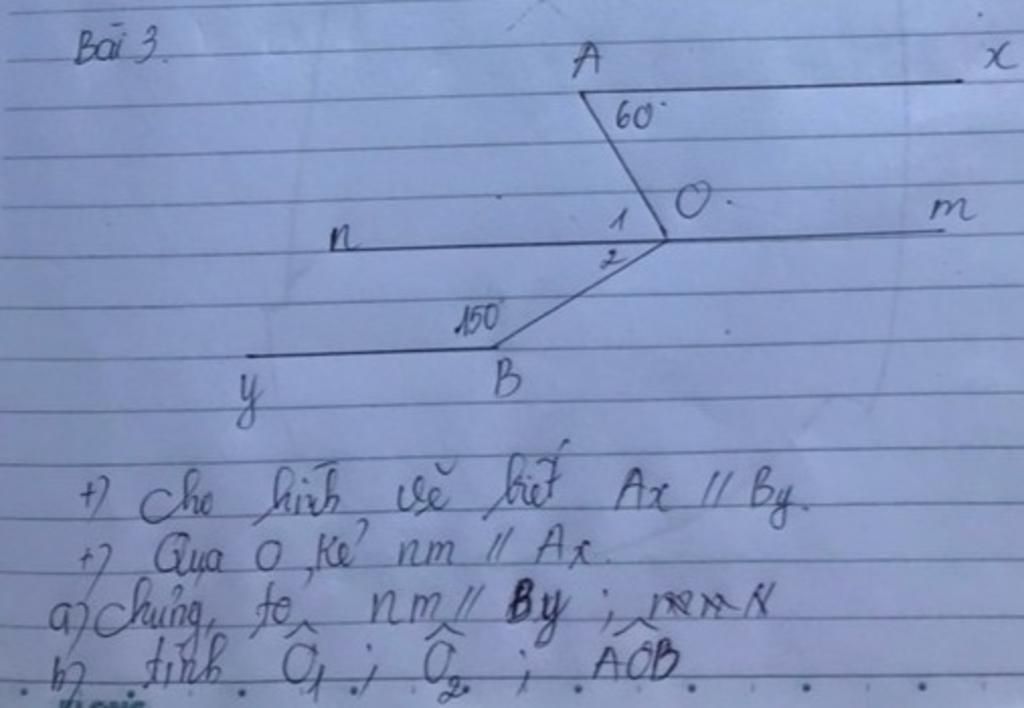 Bài 3.
A x
60°
O
n 1 m
2
150
y B
+) Cho hình vẽ biết Ax // By.
+) Qua O, kẻ nm // Ax.
a) chứng tỏ nm // By ;
b) tính Ô1 ; Ô2 ; AÔB